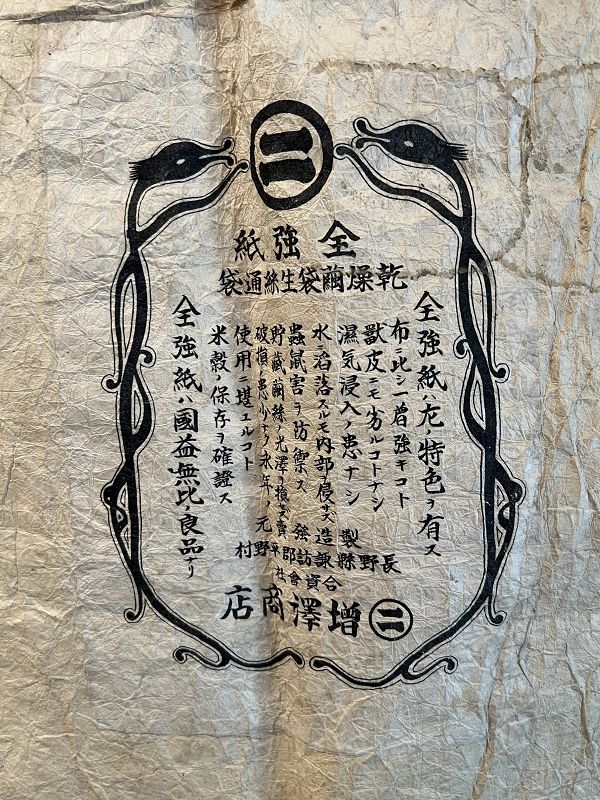 二
全強紙
乾燥繭袋生絲通袋
全強紙ハ左ノ特色ヲ有ス
布ニ比シ一層強キコト
獸皮ニモ劣ルコトナシ
濕気浸入ノ患ナシ
水ニ滔落スルモ内部ヲ侵サズ
蟲鼠害ヲ防禦ス
貯蔵繭絲ノ光澤ヲ損セズ
破損ノ患少ナク永年ノ
使用ニ堪エルコト
米穀ノ保存ヲ確證ス
全強紙ハ國益無比ノ良品ナリ
製造 賣元
長野縣諏訪郡平野村
合資會社
二 増澤商店